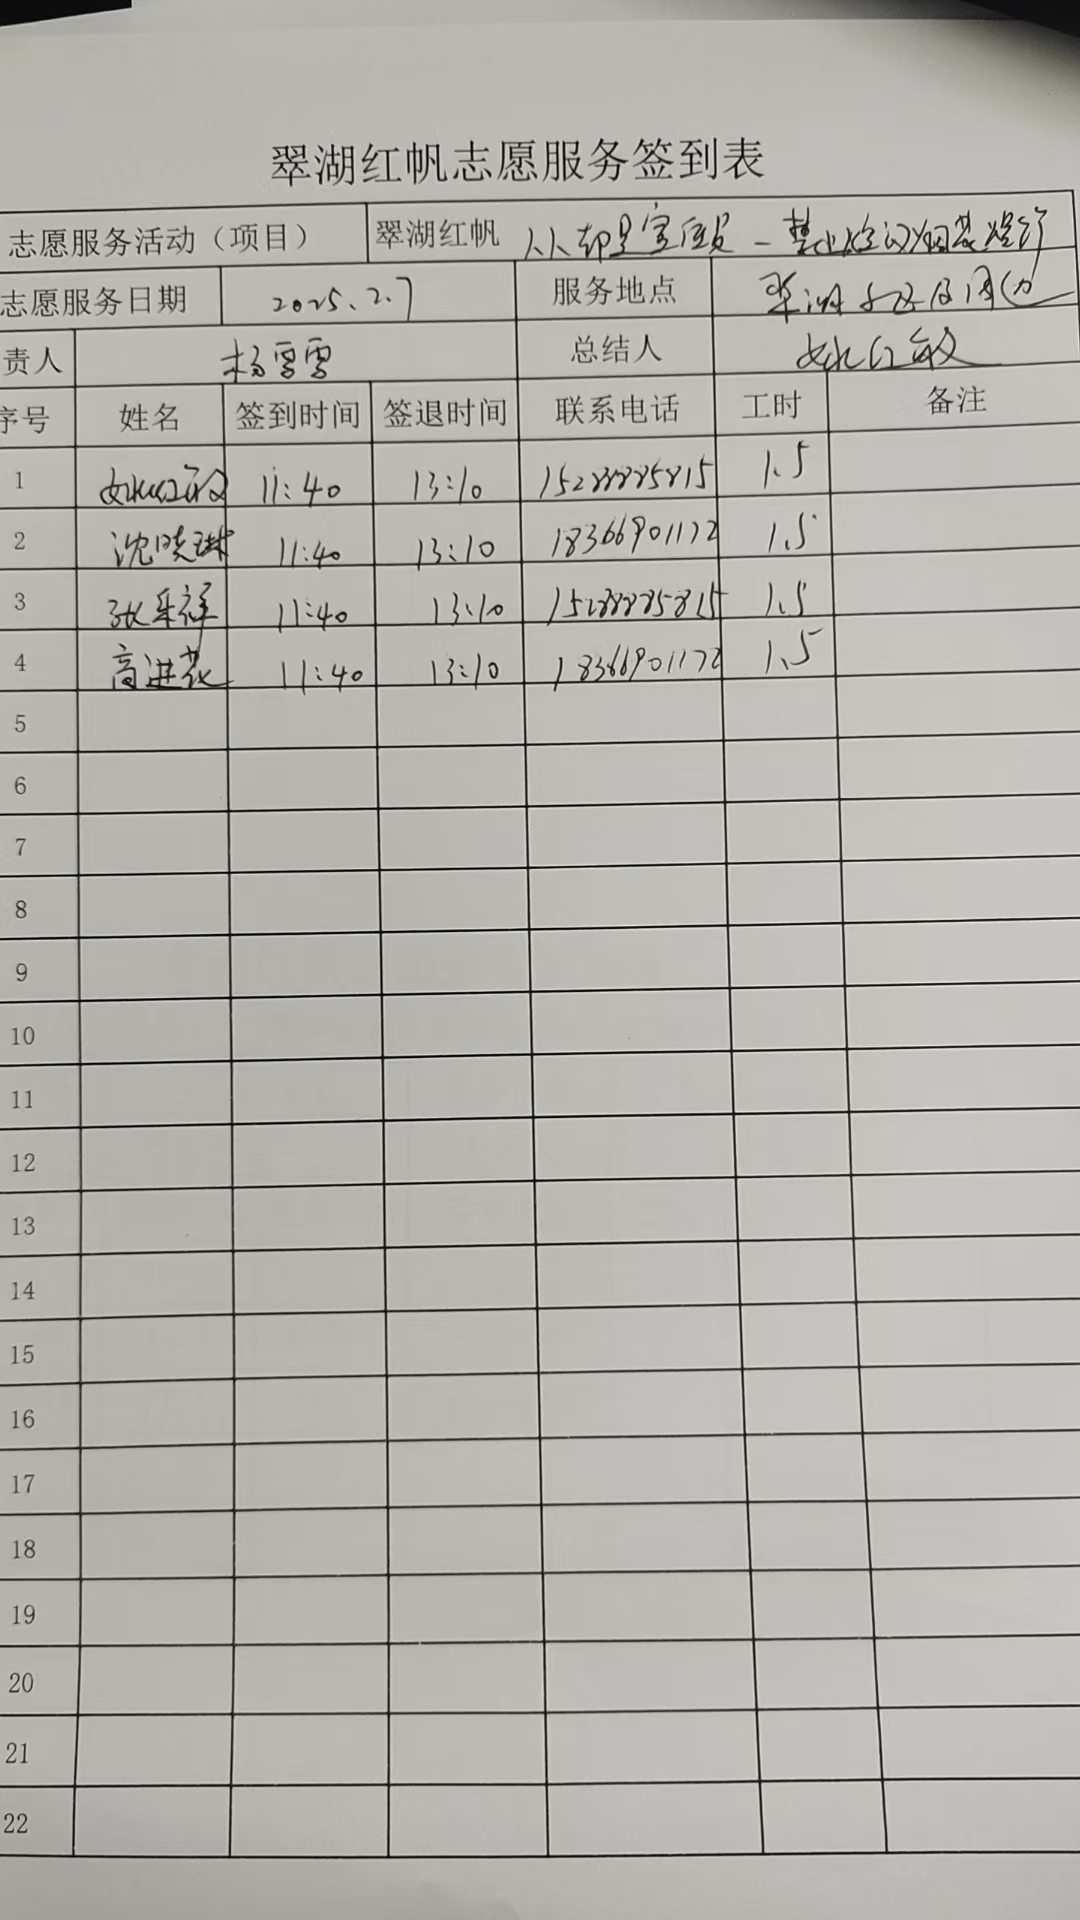 翠湖红帆志愿服务签到表
志愿服务活动（项目） 翠湖红帆 人人都是宣传员 - 禁止
志愿服务日期 2025.2.7 服务地点 翠湖社区及周边
责人 杨雪雪 总结人 姚红敏
序号 姓名 签到时间 签退时间 联系电话 工时 备注
1 姚红敏 11:40 13:10 15288885815 1.5
2 沈晓琳 11:40 13:10 18366901172 1.5
3 张采祥 11:40 13:10 15288885815 1.5
4 高进花 11:40 13:10 18366901172 1.5
5
6
7
8
9
10
11
12
13
14
15
16
17
18
19
20
21
22